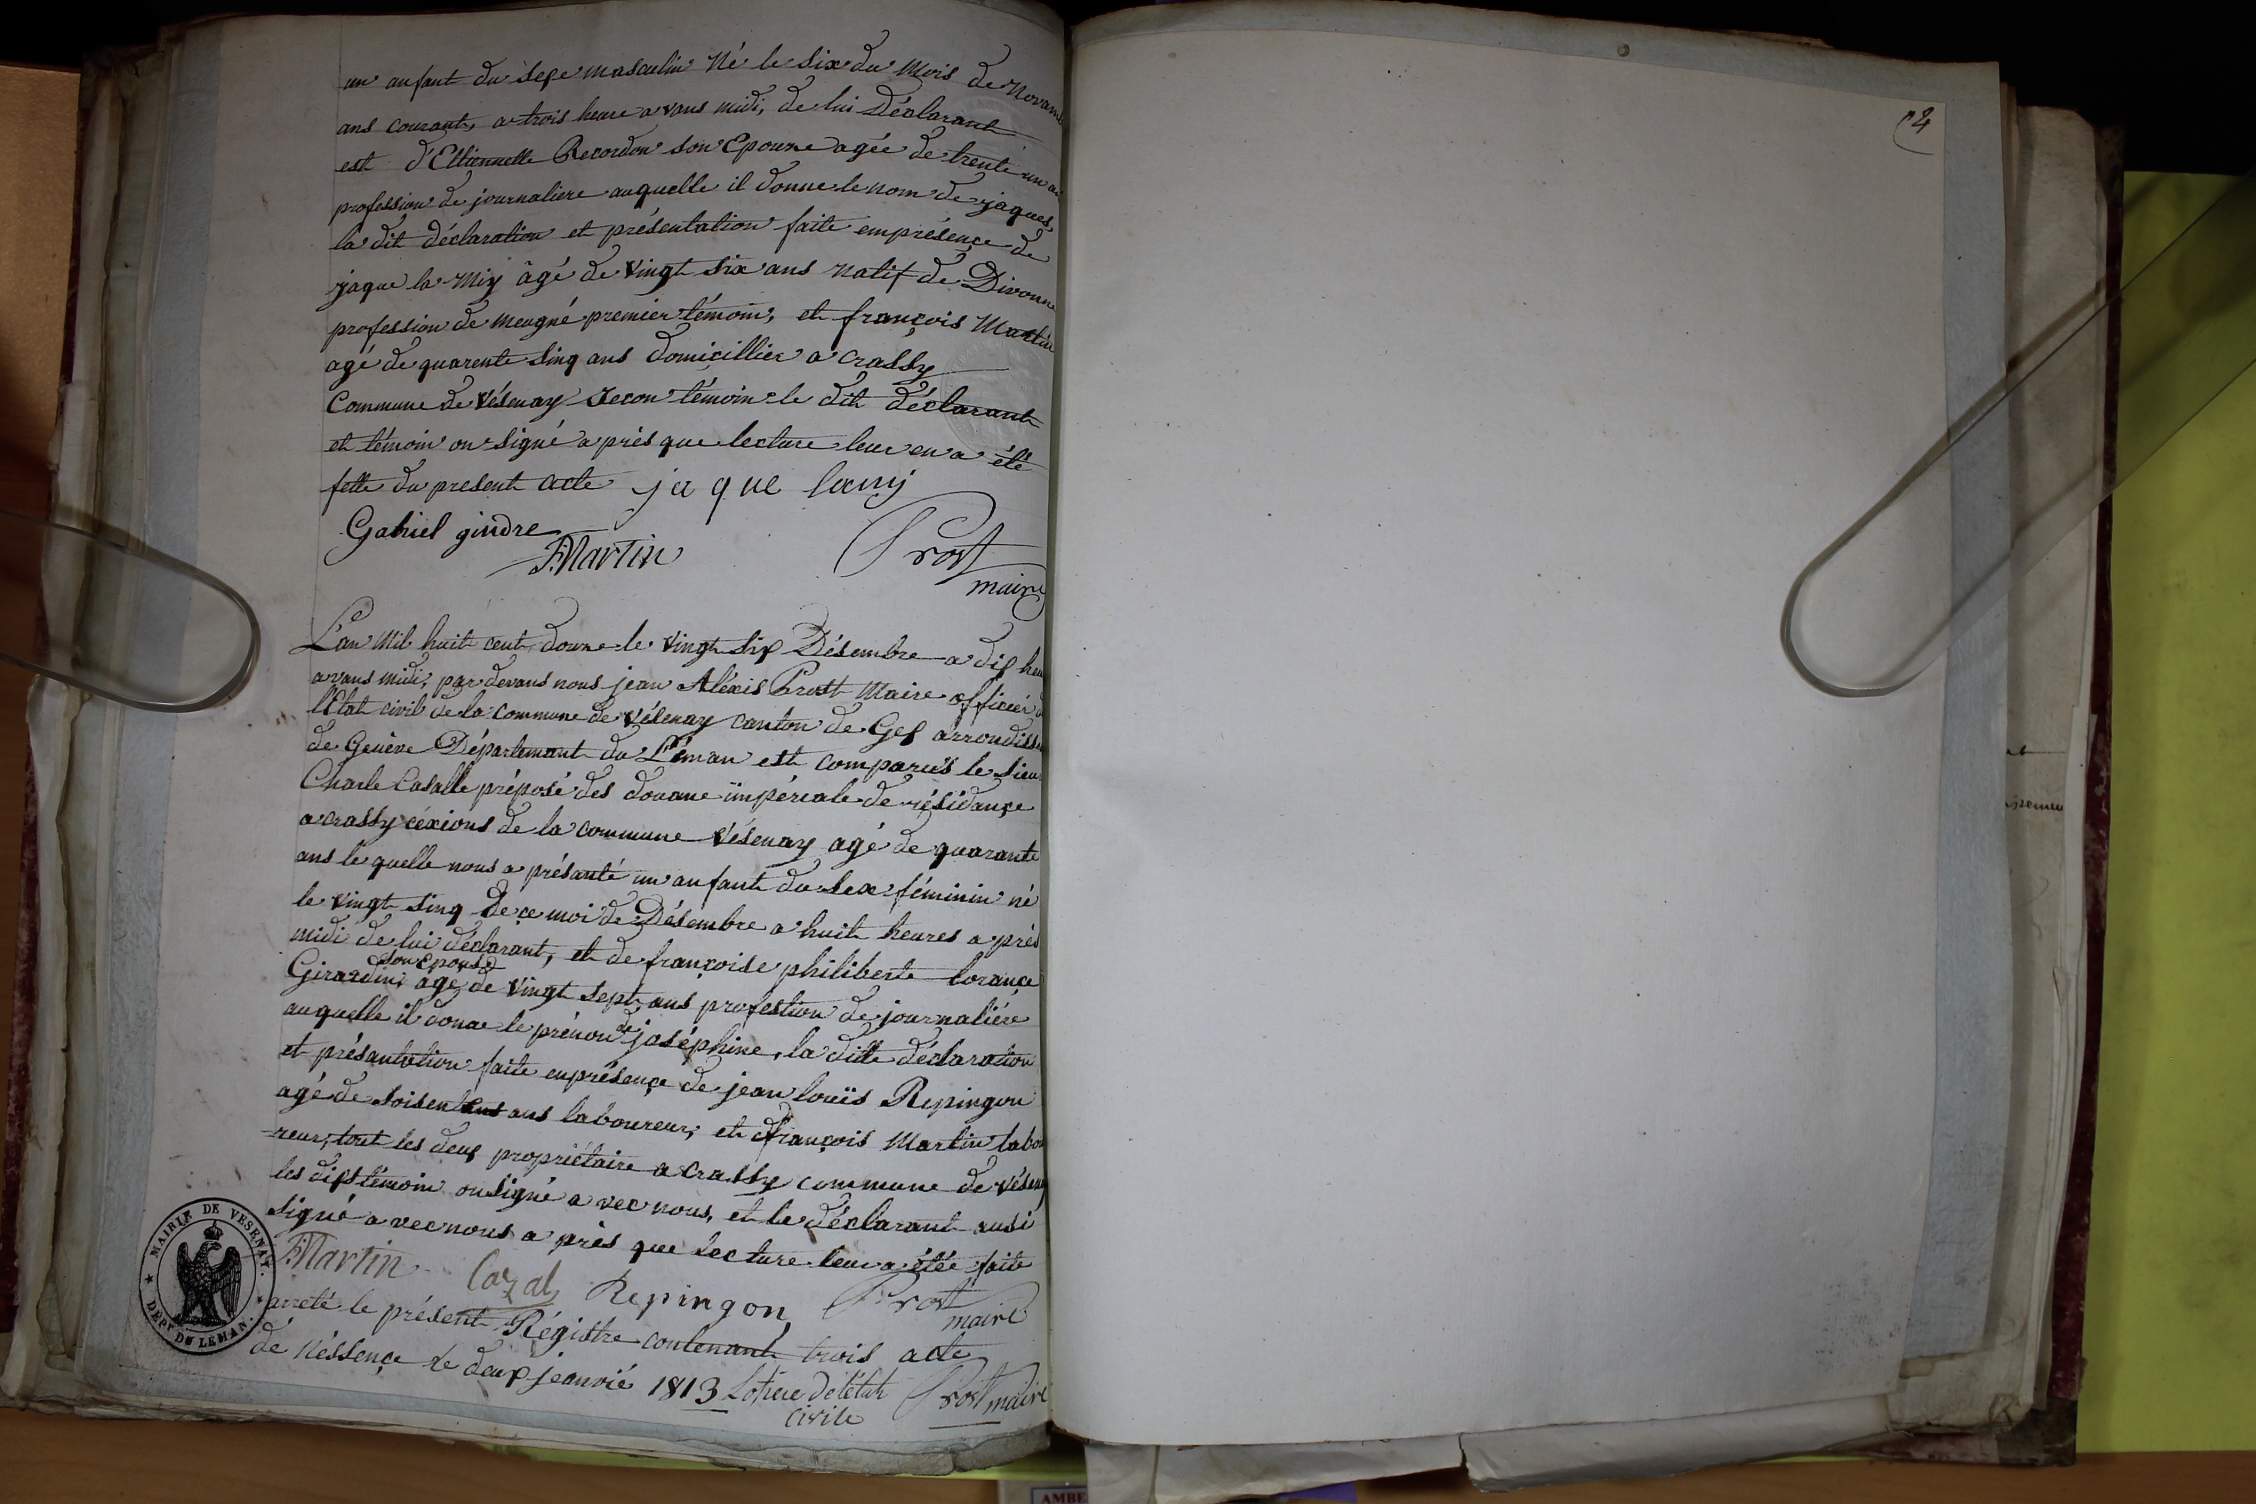 un anfant du sexe masculin Né le six du Mois de Novam
ans courant, a trois heure avans midi, de lui Déclarant
est d'Ettiennette Recordon son Epoune agée de trente un an
profession de journaliere auquelle il donne le nom de jaques,
la dit déclaration et présentation faite emprésençe de
jaque la Miy âgé de vingt six ans natif de Divonne
profession de meugné premier témoin, et françois Martin
agé de quarente sinq ans domicillier a crassy
Commune de Vésenay secon témoin le dit déclarant
et témoin on signé a près que lecture leur en a été
fette du present acte jaque lamj
Gabriel gindre
F. Martin
Prost
maire
L'an Mil huit cent doune le vingt six Désembre a dix heu
avans midi, par devans nous jean Aléxis Prost Maire officiér d
l'état civil de la commune de Vésenay canton de Gex arrondiss
de Genève Départemant du Léman est comparüs le sieu
Charle Casalle préposé des douane impériale de résidançe
a crassy céxions de la commune Vésenay agé de quarante
ans le quelle nous a présanté un anfant du sex féminin né
le vingt sinq de ce moi de Désembre a huit heures a près
midi de lui déclarant, et de françoise philiberte lorançe
son Epouse
Girardin; age de vingt sept ans profession de journaliére
auquelle il donne le prénon de joséphine, la ditte déclaration
et présantation faite enprésençe de jean louïs Repingon
agé de soisente ans laboureur; et françois Martin labou
reur, tout les deux propriétaire a crassy commune de Vésenay
les dis témoin on signé a vec nous, et le déclarant ausi
signé avec nous a près que lecture leur a étée faite
F. Martin Cazal Repingon Prost
maire
arreté le présent Régistre contenant trois acte
de Néssençe le deux jeanvié 1813 Lofisié de l'étât Prost maire
civile
MAIRIE DE VESENAY.
DÉPT. DU LEMAN.
24
AMBE